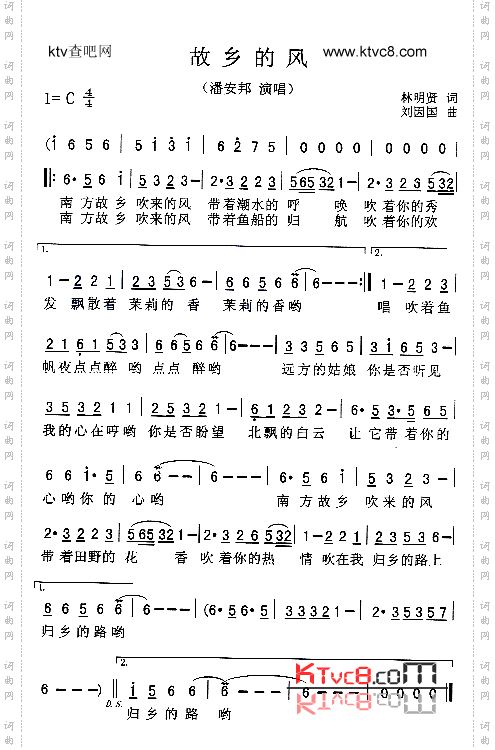 ktv查吧网
故乡的风
www.ktvc8.com
（潘安邦 演唱）
1=C 4/4
林明贤 词
刘因国 曲
(i 6 5 6 | 5 i 5 3 | 6· 2 7 6 5 | 0 0 0 0 | 0 0 0 0 )
‖: 6· 5 6 i | 5 3 2 3 | 2· 3 2 2 3 | 5 653 2 1 - | 2· 3 2 3 5 3 2
南方故乡 吹来的风 带着潮水的呼 唤 吹着你的秀
南方故乡 吹来的风 带着鱼船的归 航 吹着你的欢
1.
2.
1 - 2 2 1 | 2 2 3 5 3 6 | 6 6 5 6 6 | 6 - - - :‖ 1 - 2 2 3
发 飘散着 茉莉的香 茉莉的香哟 唱 吹着鱼
2 1 6 1 5 3 | 2 1 2 1 6 6 | 6 - - - | 3 3 3 5 6 5 | 3 2 3 5
帆夜点点醉 哟 点点 醉哟 远方的姑娘 你是否听见
3 5 3 2 1 | 3 5 3 2 1 2 | 6· 1 2 2 1 2 | 3· 5 3 5 6 5
我的心在哼哟 你是否盼望 北飘的白云 让它带着你的
6 6 i· 5 | 6 6 - - | 6 - - - | 6· 5 6 i | 5 3 2 3
心哟你的 心哟 南方故乡 吹来的风
2· 3 2 2 3 | 5 653 2 1 - | 2· 3 2 6 5 3 2 | 1 - 2 3 | 1 2 1 2 3
带着田野的花 香 吹着你的热 情 吹在我 归乡的路上
1.
6 6 5 6 6 | 6 - - - | (6· 5 6 i | 3 3 2 1 | 2· 3 5 3 5 7
归乡的路哟
2.
6 - - - ) ‖ i 5 6 6 | 6 - - - | 6 - - - | 0 0 0 0 ‖
D.S.
归乡的路 哟
KTvc8.com
KTvc8.com
词曲网